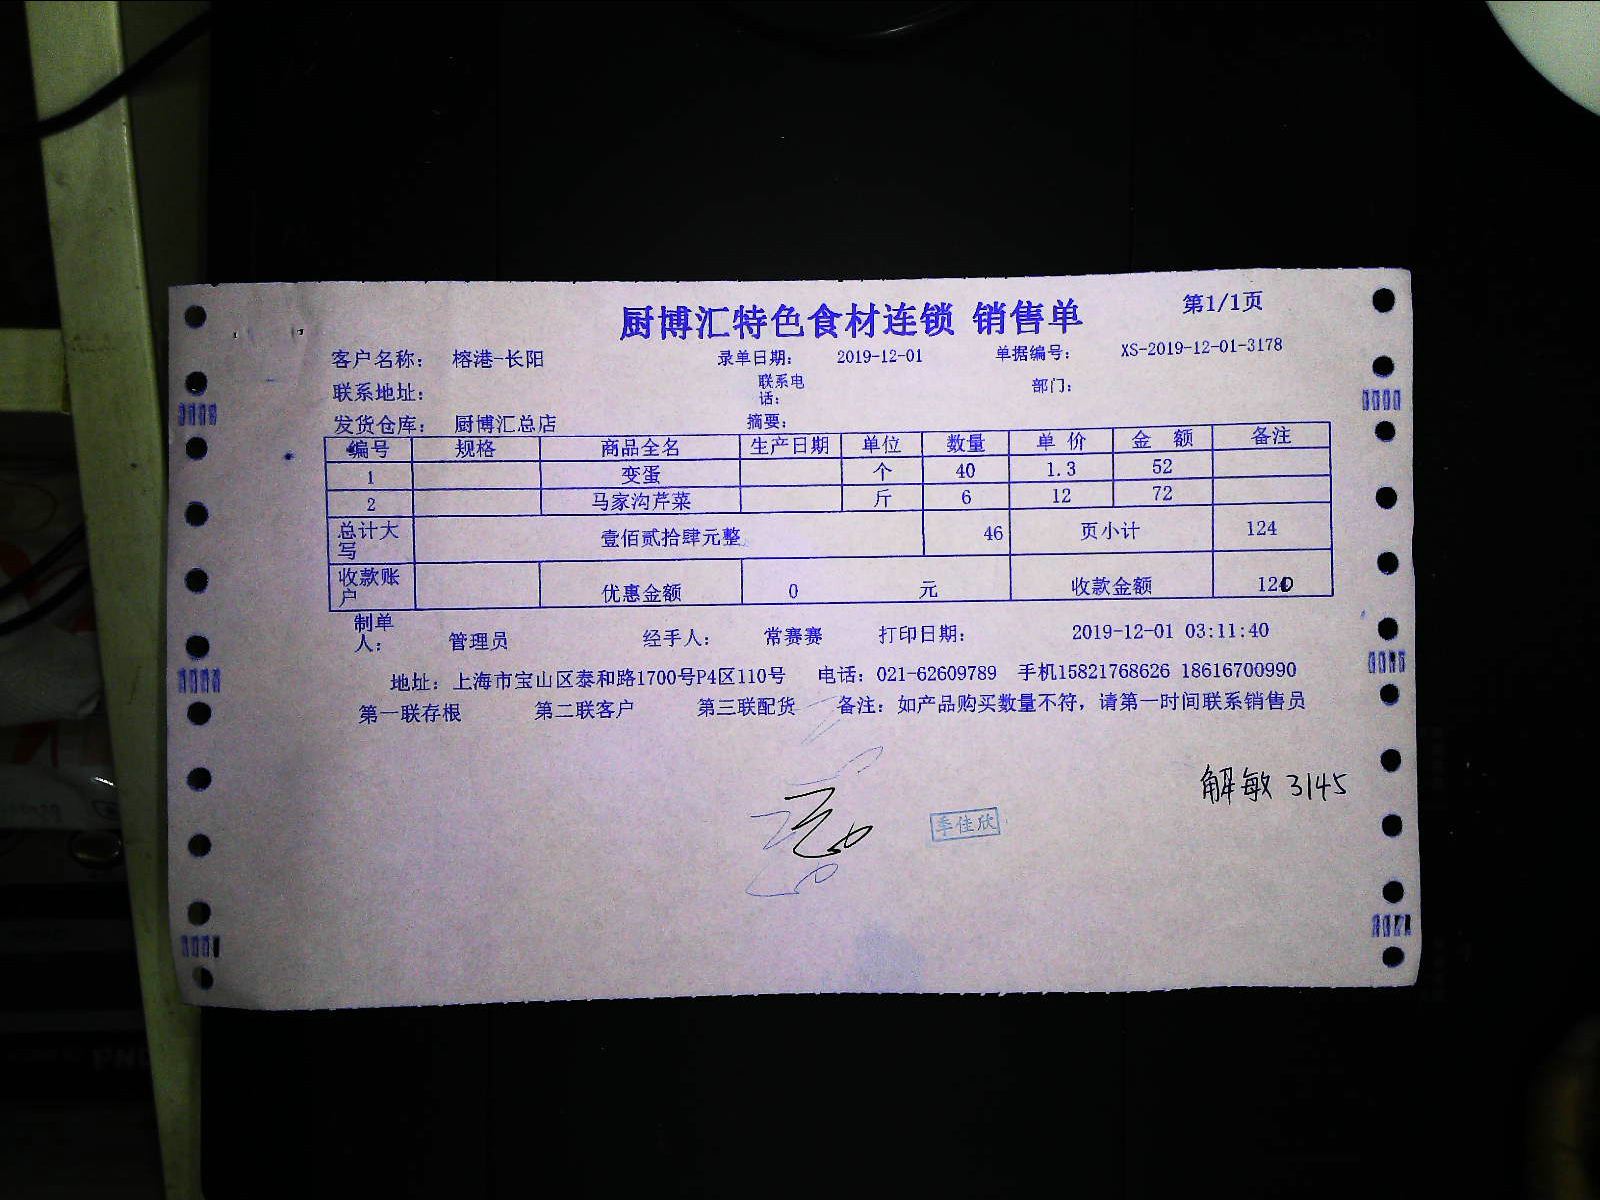 厨博汇特色食材连锁 销售单 第1/1页
客户名称： 榕港-长阳 录单日期： 2019-12-01 单据编号： XS-2019-12-01-3178
联系地址： 联系电话： 部门：
发货仓库： 厨博汇总店 摘要：
编号 规格 商品全名 生产日期 单位 数量 单 价 金 额 备注
1 变蛋 个 40 1.3 52
2 马家沟芹菜 斤 6 12 72
总计大写 壹佰贰拾肆元整 46 页小计 124
收款账户 优惠金额 0 元 收款金额 120
制单人： 管理员 经手人： 常赛赛 打印日期： 2019-12-01 03:11:40
地址：上海市宝山区泰和路1700号P4区110号 电话：021-62609789 手机15821768626 18616700990
第一联存根 第二联客户 第三联配货 备注：如产品购买数量不符，请第一时间联系销售员
解敏 3145
季佳欣